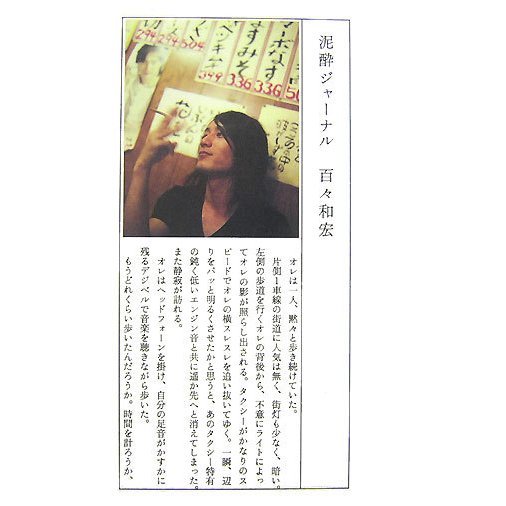 泥酔ジャーナル　百々和宏
オレは一人、黙々と歩き続けていた。
片側1車線の街道に人気は無く、街灯も少なく、暗い。
左側の歩道を行くオレの背後から、不意にライトによっ
てオレの影が照らし出される。タクシーがかなりのス
ピードでオレの横スレスレを追い抜いてゆく。一瞬、辺
りをパッと明るくさせたかと思うと、あのタクシー特有
の鈍く低いエンジン音と共に遥か先へと消えてしまった。
また静寂が訪れる。
オレはヘッドフォーンを掛け、自分の足音がかすかに
残るデジベルで音楽を聴きながら歩いた。
もうどれくらい歩いたんだろうか。時間を計ろうか、
マーボなす
336
336
349
504
294
294